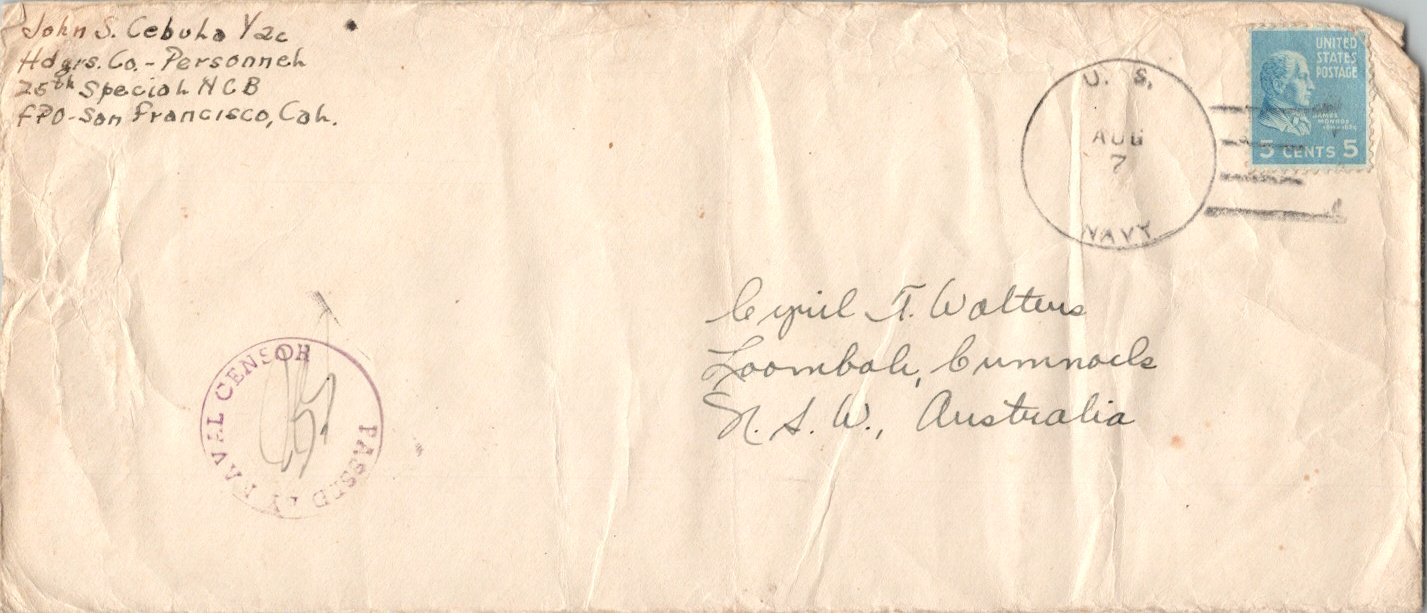 John S. Cebula Y2c
Hdqrs. Co. - Personnel
25th Special NCB
FPO - San Francisco, Cal.
U. S.
AUG
7
NAVY
UNITED
STATES
POSTAGE
JAMES
MONROE
5 CENTS 5
Cyril T. Walters
Loombah, Cumnock
N. S. W., Australia
PASSED BY NAVAL CENSOR